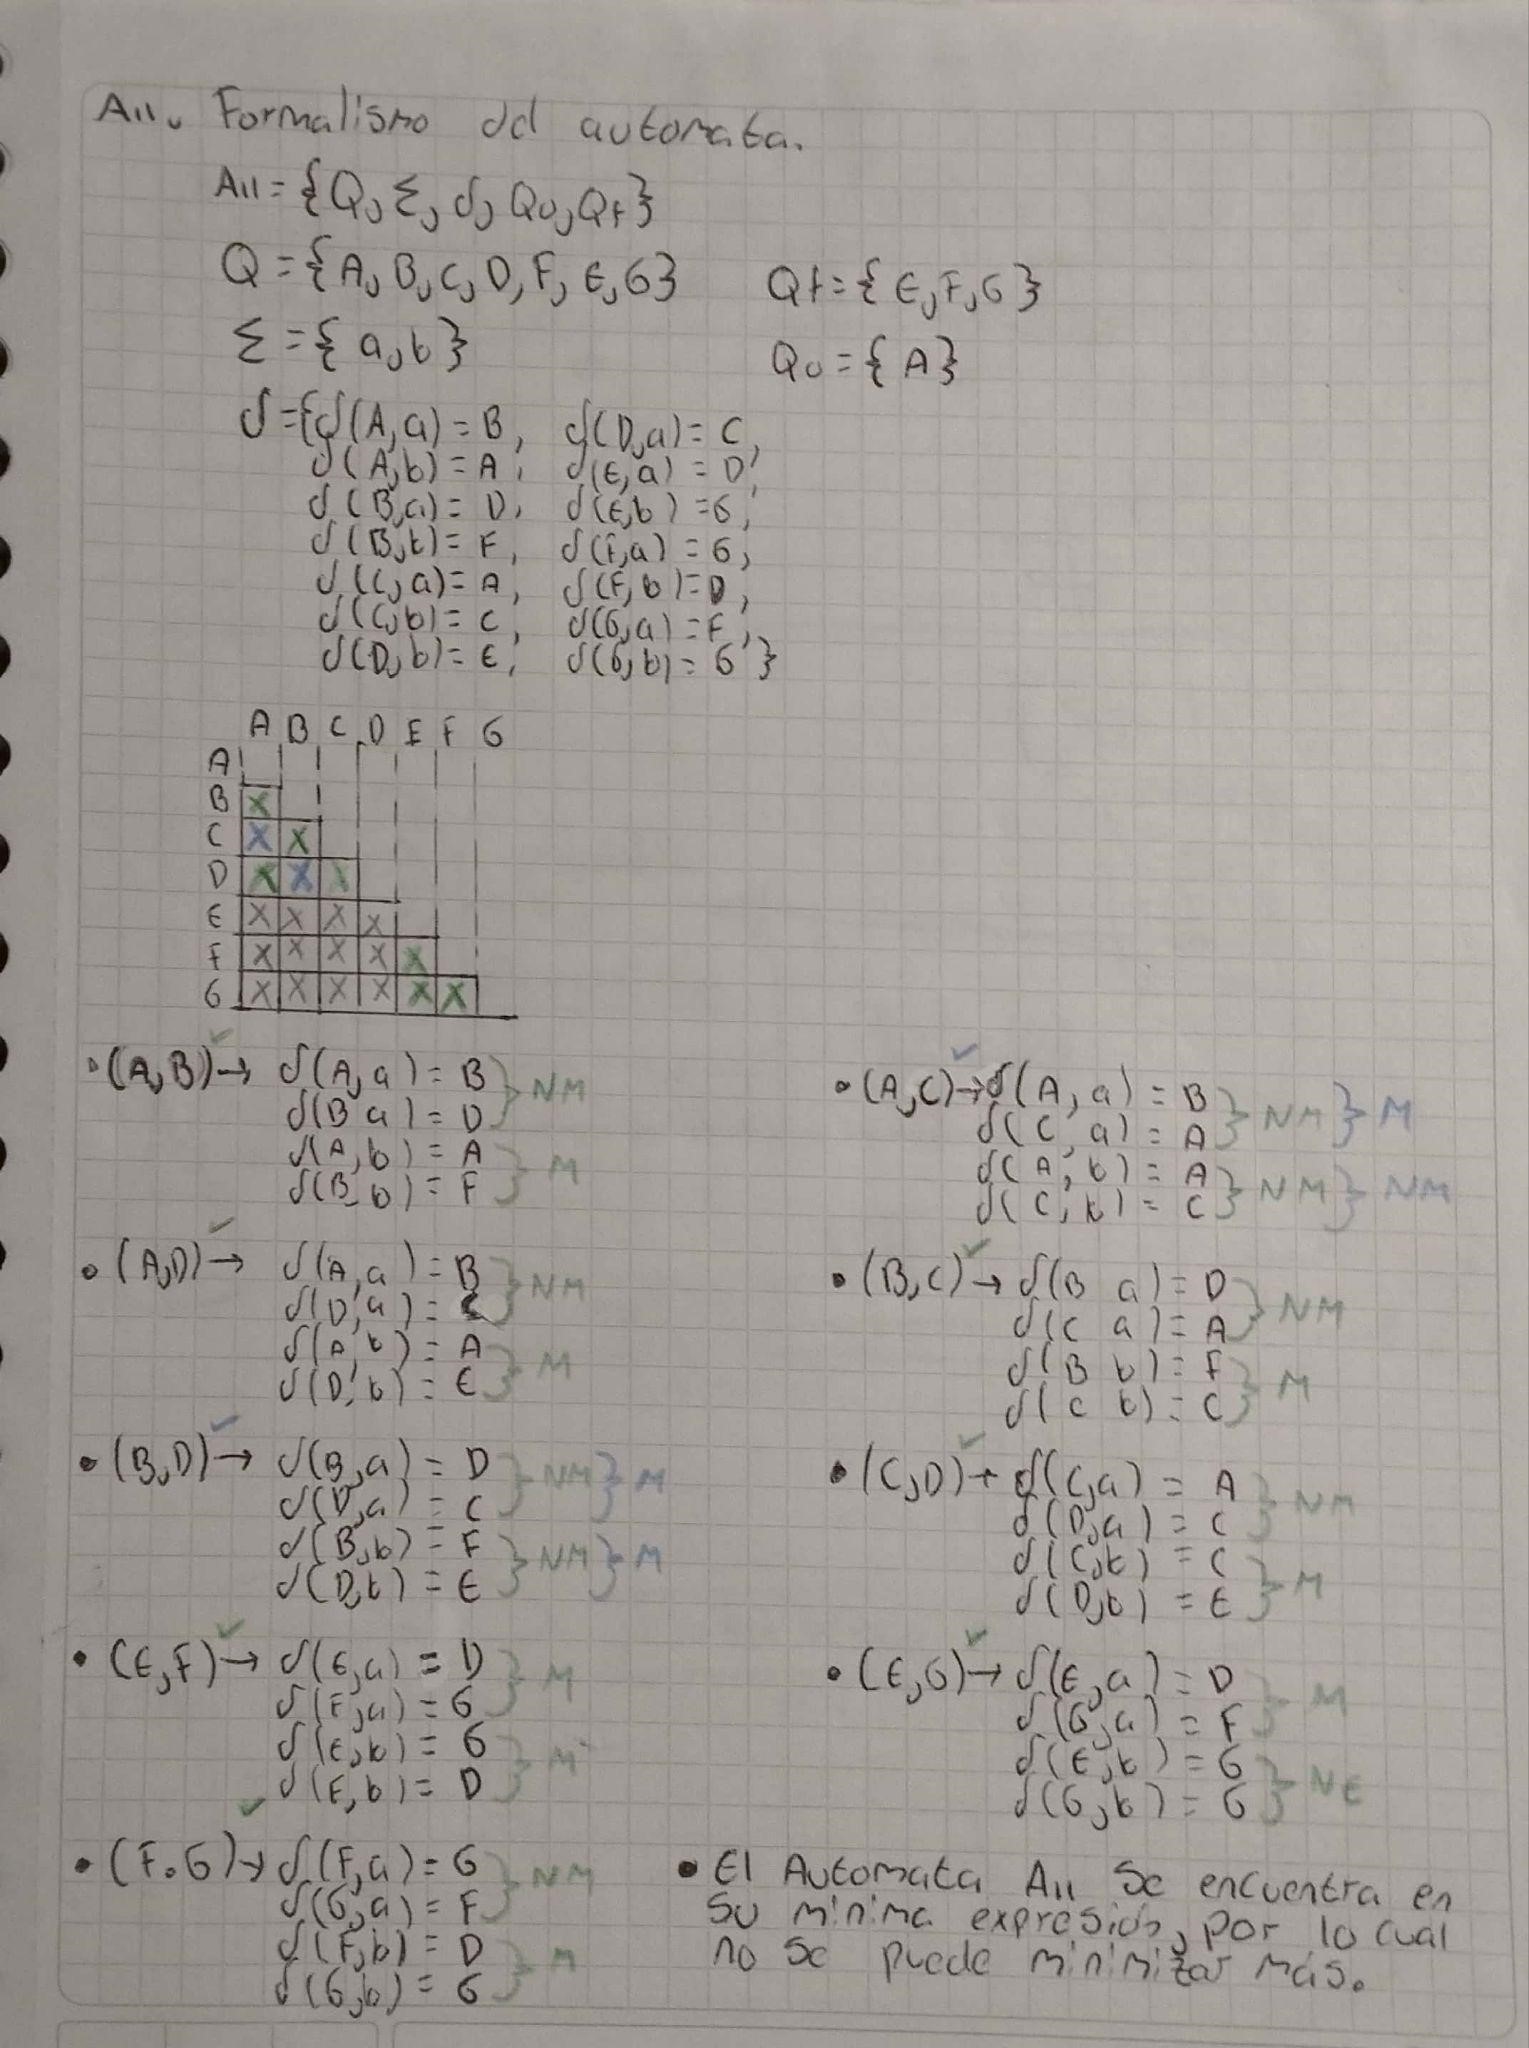 A11. Formalismo del automata.
A11 = {Q, Σ, δ, Q0, Qf}
Q = {A, B, C, D, F, E, G} Qf = {E, F, G}
Σ = {a, b} Q0 = {A}
δ = {δ(A, a) = B, δ(D, a) = C,
δ(A, b) = A, δ(E, a) = D,
δ(B, a) = D, δ(E, b) = G,
δ(B, b) = F, δ(F, a) = G,
δ(C, a) = A, δ(F, b) = D,
δ(C, b) = C, δ(G, a) = F,
δ(D, b) = E, δ(G, b) = G}
A B C D E F G
A
B X
C X X
D X X X
E X X X X
F X X X X X
G X X X X X X
• (A, B) ✓ → δ(A, a) = B } NM
δ(B a) = D
δ(A, b) = A } M
δ(B b) = F
• (A, C) ✓ → δ(A, a) = B } NM } M
δ(C, a) = A
δ(A, b) = A } NM } NM
δ(C, b) = C
• (A, D) ✓ → δ(A, a) = B } NM
δ(D, a) = C
δ(A, b) = A } M
δ(D, b) = E
• (B, C) ✓ → δ(B a) = D } NM
δ(C a) = A
δ(B b) = F } M
δ(C b) = C
• (B, D) ✓ → δ(B, a) = D } NM } M
δ(D, a) = C
δ(B, b) = F } NM } M
δ(D, b) = E
• (C, D) ✓ → δ(C, a) = A } NM
δ(D, a) = C
δ(C, b) = C } M
δ(D, b) = E
• (E, F) ✓ → δ(E, a) = D } M
δ(F, a) = G
δ(E, b) = G } M
δ(F, b) = D
• (E, G) ✓ → δ(E, a) = D } M
δ(G, a) = F
δ(E, b) = G } NE
δ(G, b) = G
• (F. G) ✓ → δ(F, a) = G } NM
δ(G, a) = F
δ(F, b) = D } M
δ(G, b) = G
• El Automata A11 se encuentra en
su minima expresión, por lo cual
no se puede minimizar más.